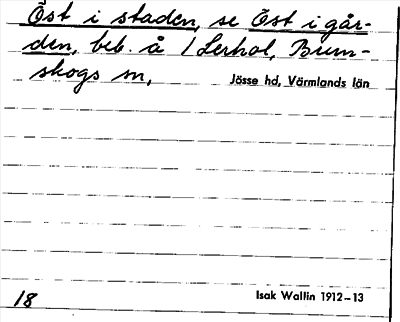 Öst i staden, se Öst i går-
den, beb. å 1 Lerhol, Brun-
skogs sn,
Jösse hd, Värmlands län
Isak Wallin 1912-13
18